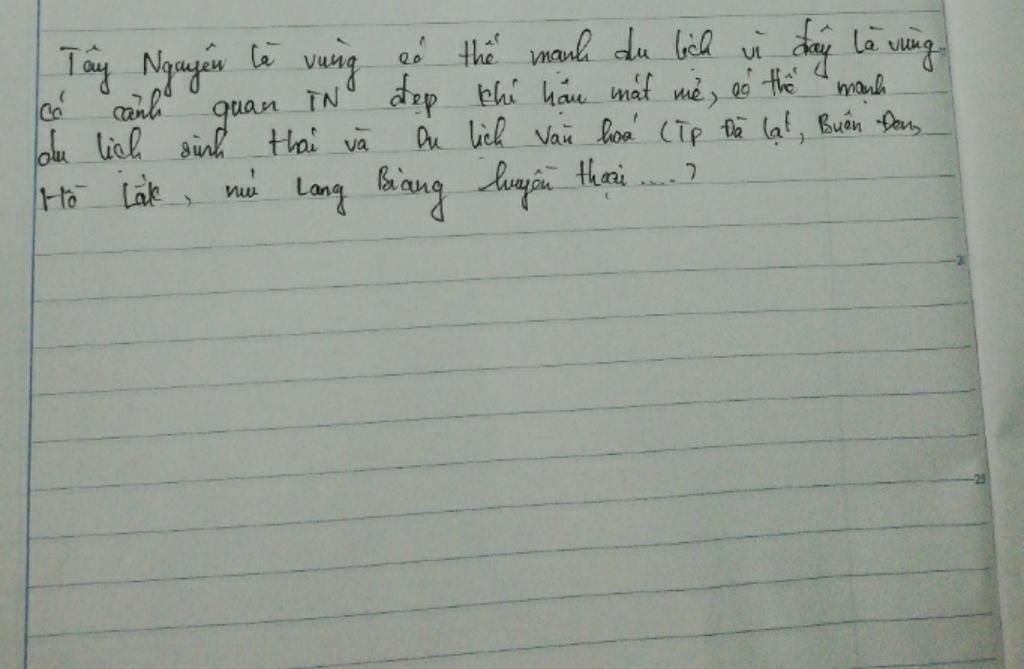 Tây Nguyên là vùng có thế mạnh du lịch vì đây là vùng
có cảnh quan TN đẹp khí hậu mát mẻ, có thế mạnh
du lịch sinh thái và Du lịch văn hoá (Tp Đà lạt, Buôn Đôn,
Hồ Lắk, núi Lang Biang huyền thoại....)
20
25